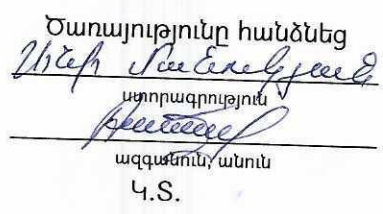 Ծառայությունը հանձնեց
Անի Մանուկյան
ստորագրություն
ազգանուն, անուն
Կ.Տ.